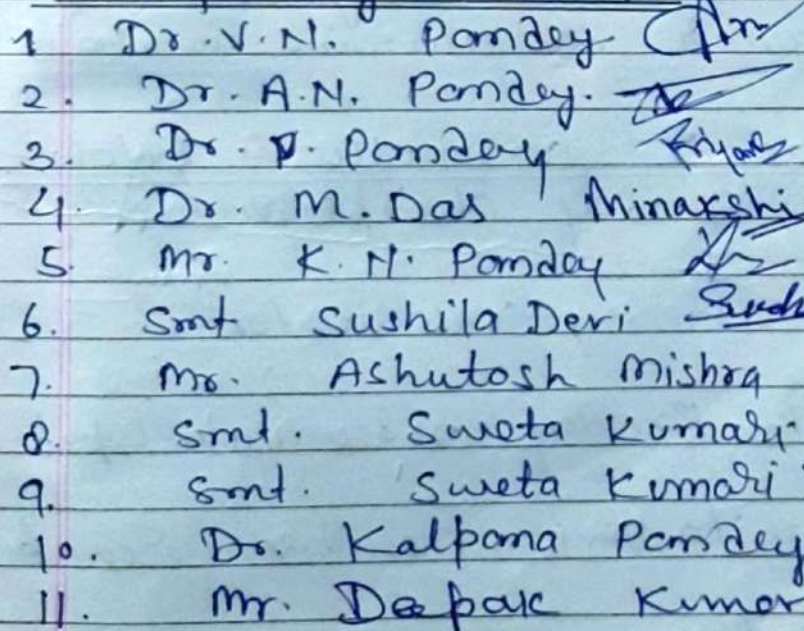 1 Dr. V. N. Pandey
2. Dr. A.N. Pandey.
3. Dr. P. Pandey
4. Dr. M. Das Minakshi
5. Mr. K. N. Pandey
6. Smt Sushila Devi
7. Mr. Ashutosh Mishra
8. Smt. Sweta Kumari
9. Smt. Sweta Kumari
10. Dr. Kalpana Pandey
11. Mr. Deepak Kumar